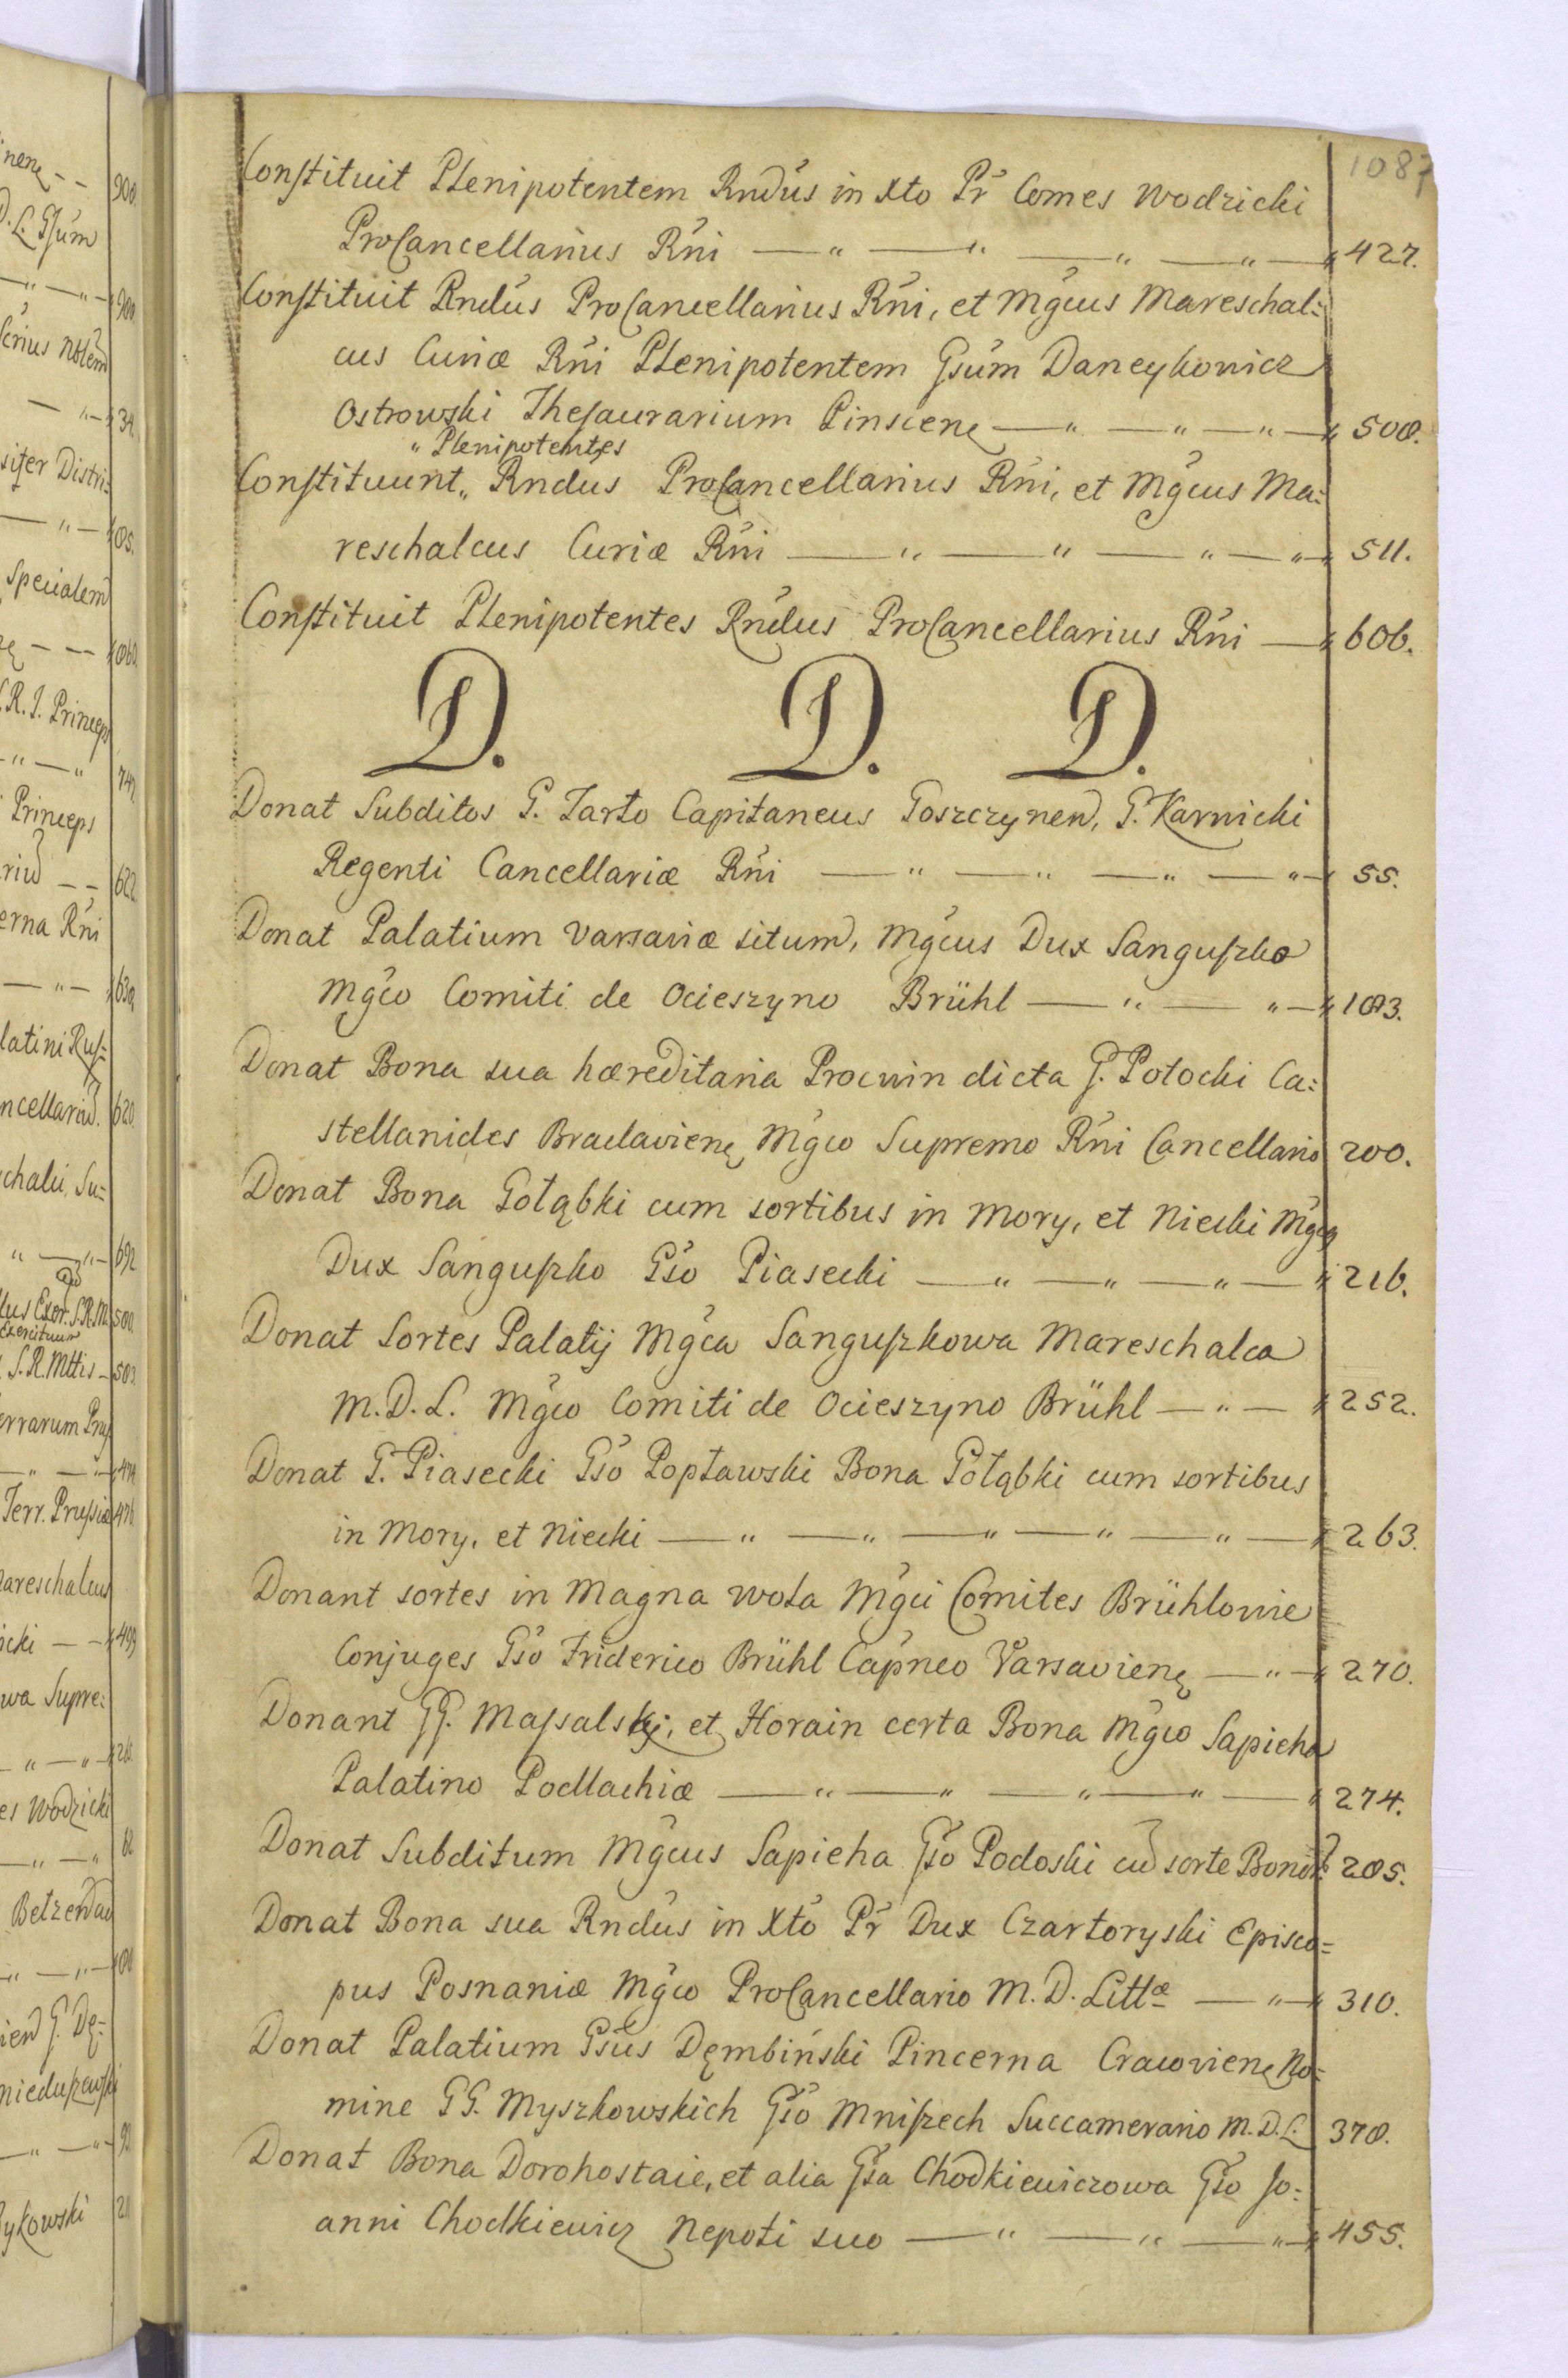 1087
Constituit Plenipotentem Rndus in Xto Pr Comes Wodzicki
ProCancellarius Rni — „ — „ — „ — „ — 427.
Constituit Rndus ProCancellarius Rni, et Mgcus Mareschal:
cus Curiæ Rni Plenipotentem Gsum Daneykowicz
Ostrowski Thesaurarium Pinscenę — „ — „ — „ — 508.
„ Plenipotentes
Constituunt „ Rndus ProCancellarius Rni, et Mgcus Ma:
reschalcus Curiæ Rni — „ — „ — „ — „ — 511.
Constituit Plenipotentes Rndus ProCancellarius Rni — 606.
D. D. D.
Donat Subditos G. Tarło Capitaneus Goszczynen, G. Karnicki
Regenti Cancellariæ Rni — „ — „ — „ — „ — 55.
Donat Palatium Varsaviæ situm, Mgcus Dux Sanguszko
Mgco Comiti de Ocieszyno Brühl — „ — „ — 183.
Donat Bona sua hæreditaria Procwin dicta G. Potocki Ca:
stellanides Braclavienę Mgco Supremo Rni Cancellario 200.
Donat Bona Gołąbki cum sortibus in Mory, et Niecki Mgcq
Dux Sanguszko Gso Piasecki — „ — „ — „ — 216.
Donat Sortes Palatij Mgca Sanguszkowa Mareschalca
M. D. L. Mgco Comiti de Ocieszyno Brühl — „ — 252.
Donat G. Piasecki Gso Popławski Bona Gołąbki cum sortibus
in Mory, et Niecki — „ — „ — „ — „ — „ — 263.
Donant sortes in Magna Wola Mgci Comites Brühlowie
Conjuges Gso Friderico Brühl Capneo Varsavienę — „ — 270.
Donant GG. Massalski, et Horain certa Bona Mgco Sapieha
Palatino Podlachiæ — „ — „ — „ — „ — 274.
Donat Subditum Mgcus Sapieha Gso Podoski cu sorte Bonor. 285.
Donat Bona sua Rndus in Xto Pr Dux Czartoryski Episco=
pus Posnaniæ Mgco ProCancellario M. D. Littæ — „ — 310.
Donat Palatium Gsus Dęmbiński Pincerna Cracovienę No:
mine GG. Myszkowskich Gso Mniszech Succamerario M. D. L. 378.
Donat Bona Dorohostaie, et alia Gsa Chodkiewiczowa Gso Jo:
anni Chodkiewicz Nepoti suo — „ — „ — „ — 455.